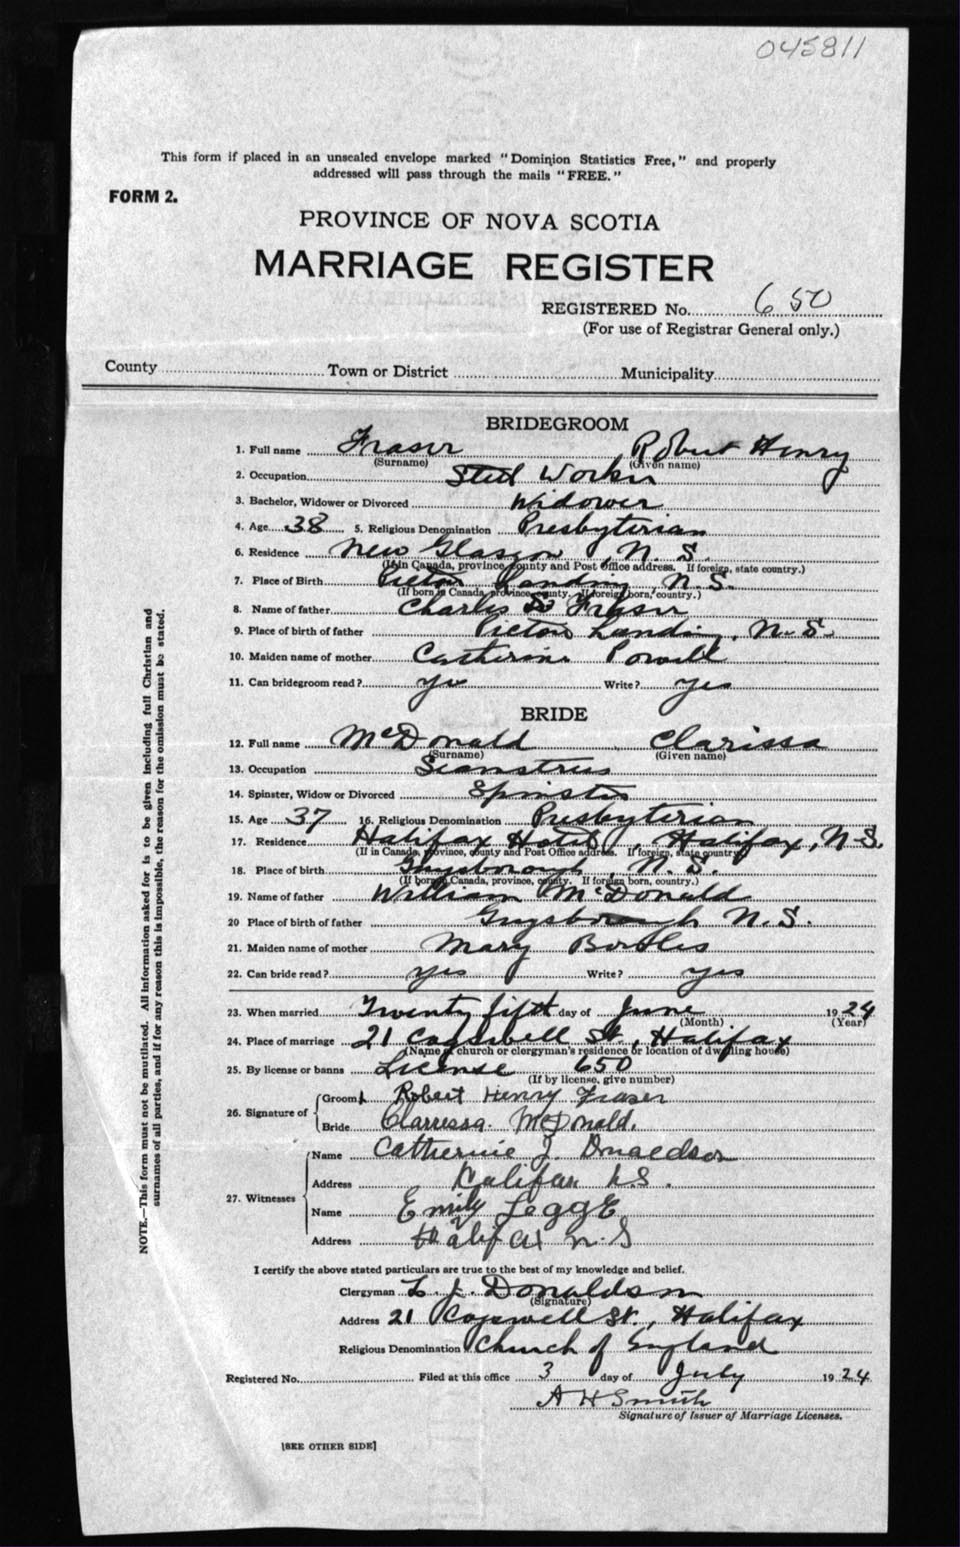 045811
This form if placed in an unsealed envelope marked "Dominion Statistics Free," and properly
addressed will pass through the mails "FREE."
FORM 2.
PROVINCE OF NOVA SCOTIA
MARRIAGE REGISTER
REGISTERED No. 650
(For use of Registrar General only.)
County Town or District Municipality
BRIDEGROOM
1. Full name Fraser Robert Henry
(Surname) (Given name)
2. Occupation Steel Worker
3. Bachelor, Widower or Divorced Widower
4. Age 38 5. Religious Denomination Presbyterian
6. Residence New Glasgow, N. S.
(If in Canada, province, county and Post Office address. If foreign, state country.)
7. Place of Birth Pictou Landing N. S.
(If born in Canada, province, county. If foreign born, country.)
8. Name of father Charles Fraser
9. Place of birth of father Pictou Landing, N. S.
10. Maiden name of mother Catherine Powell
11. Can bridegroom read? yes Write? yes
BRIDE
12. Full name McDonald Clarissa
(Surname) (Given name)
13. Occupation Seamstress
14. Spinster, Widow or Divorced Spinster
15. Age 37 16. Religious Denomination Presbyterian
17. Residence Halifax Hotel, Halifax, N.S.
(If in Canada, province, county and Post Office address. If foreign, state country)
18. Place of birth Guysborough, N. S.
(If born in Canada, province, county. If foreign born, country.)
19. Name of father William McDonald
20 Place of birth of father Guysborough N. S.
21. Maiden name of mother Mary
22. Can bride read? yes Write? yes
23. When married Twenty fifth day of June 1924
(Month) (Year)
24. Place of marriage 21 Cogswell St., Halifax
(Name of church or clergyman's residence or location of dwelling house)
25. By license or banns License 650
(If by license, give number)
26. Signature of
Groom Robert Henry Fraser
Bride Clarressa McDonald.
27. Witnesses
Name Catherine J. Donaldson
Address Halifax N.S.
Name Emily LeggE
Address Halifax N.S
I certify the above stated particulars are true to the best of my knowledge and belief.
Clergyman L. J. Donaldson
(Signature)
Address 21 Cogswell St., Halifax
Religious Denomination Church of England
Registered No. Filed at this office 3 day of July 1924
A H Smith
Signature of Issuer of Marriage Licenses.
[SEE OTHER SIDE]
NOTE.—This form must not be mutilated. All information asked for is to be given including full Christian and
surnames of all parties, and if for any reason this is impossible, the reason for the omission must be stated.